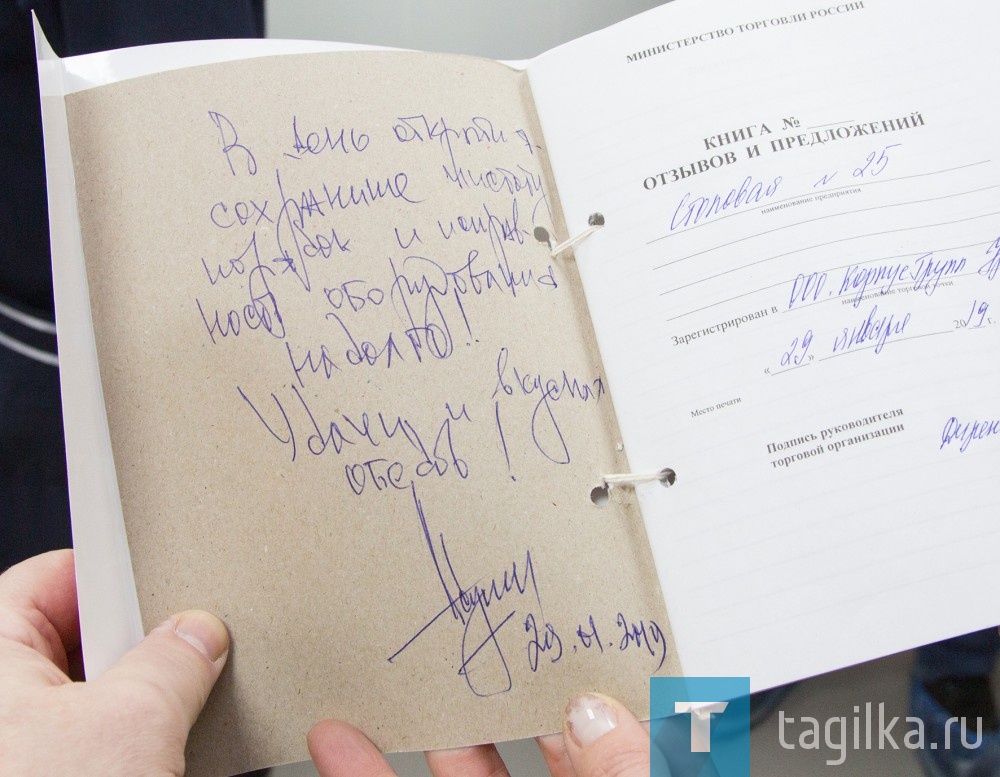 В день открытия
сохранише чистоту
порядок и исправ-
ность оборудования
надолго!
Удачи и вкусных
обедов!
29.01.2019
МИНИСТЕРСТВО ТОРГОВЛИ РОССИИ
КНИГА №
ОТЗЫВОВ И ПРЕДЛОЖЕНИЙ
Столовая № 25
наименование предприятия
Зарегистрирован в ООО. КорпусГрупп
наименование
«29» января 2019 г.
Место печати
Подпись руководителя
торговой организации
tagilka.ru